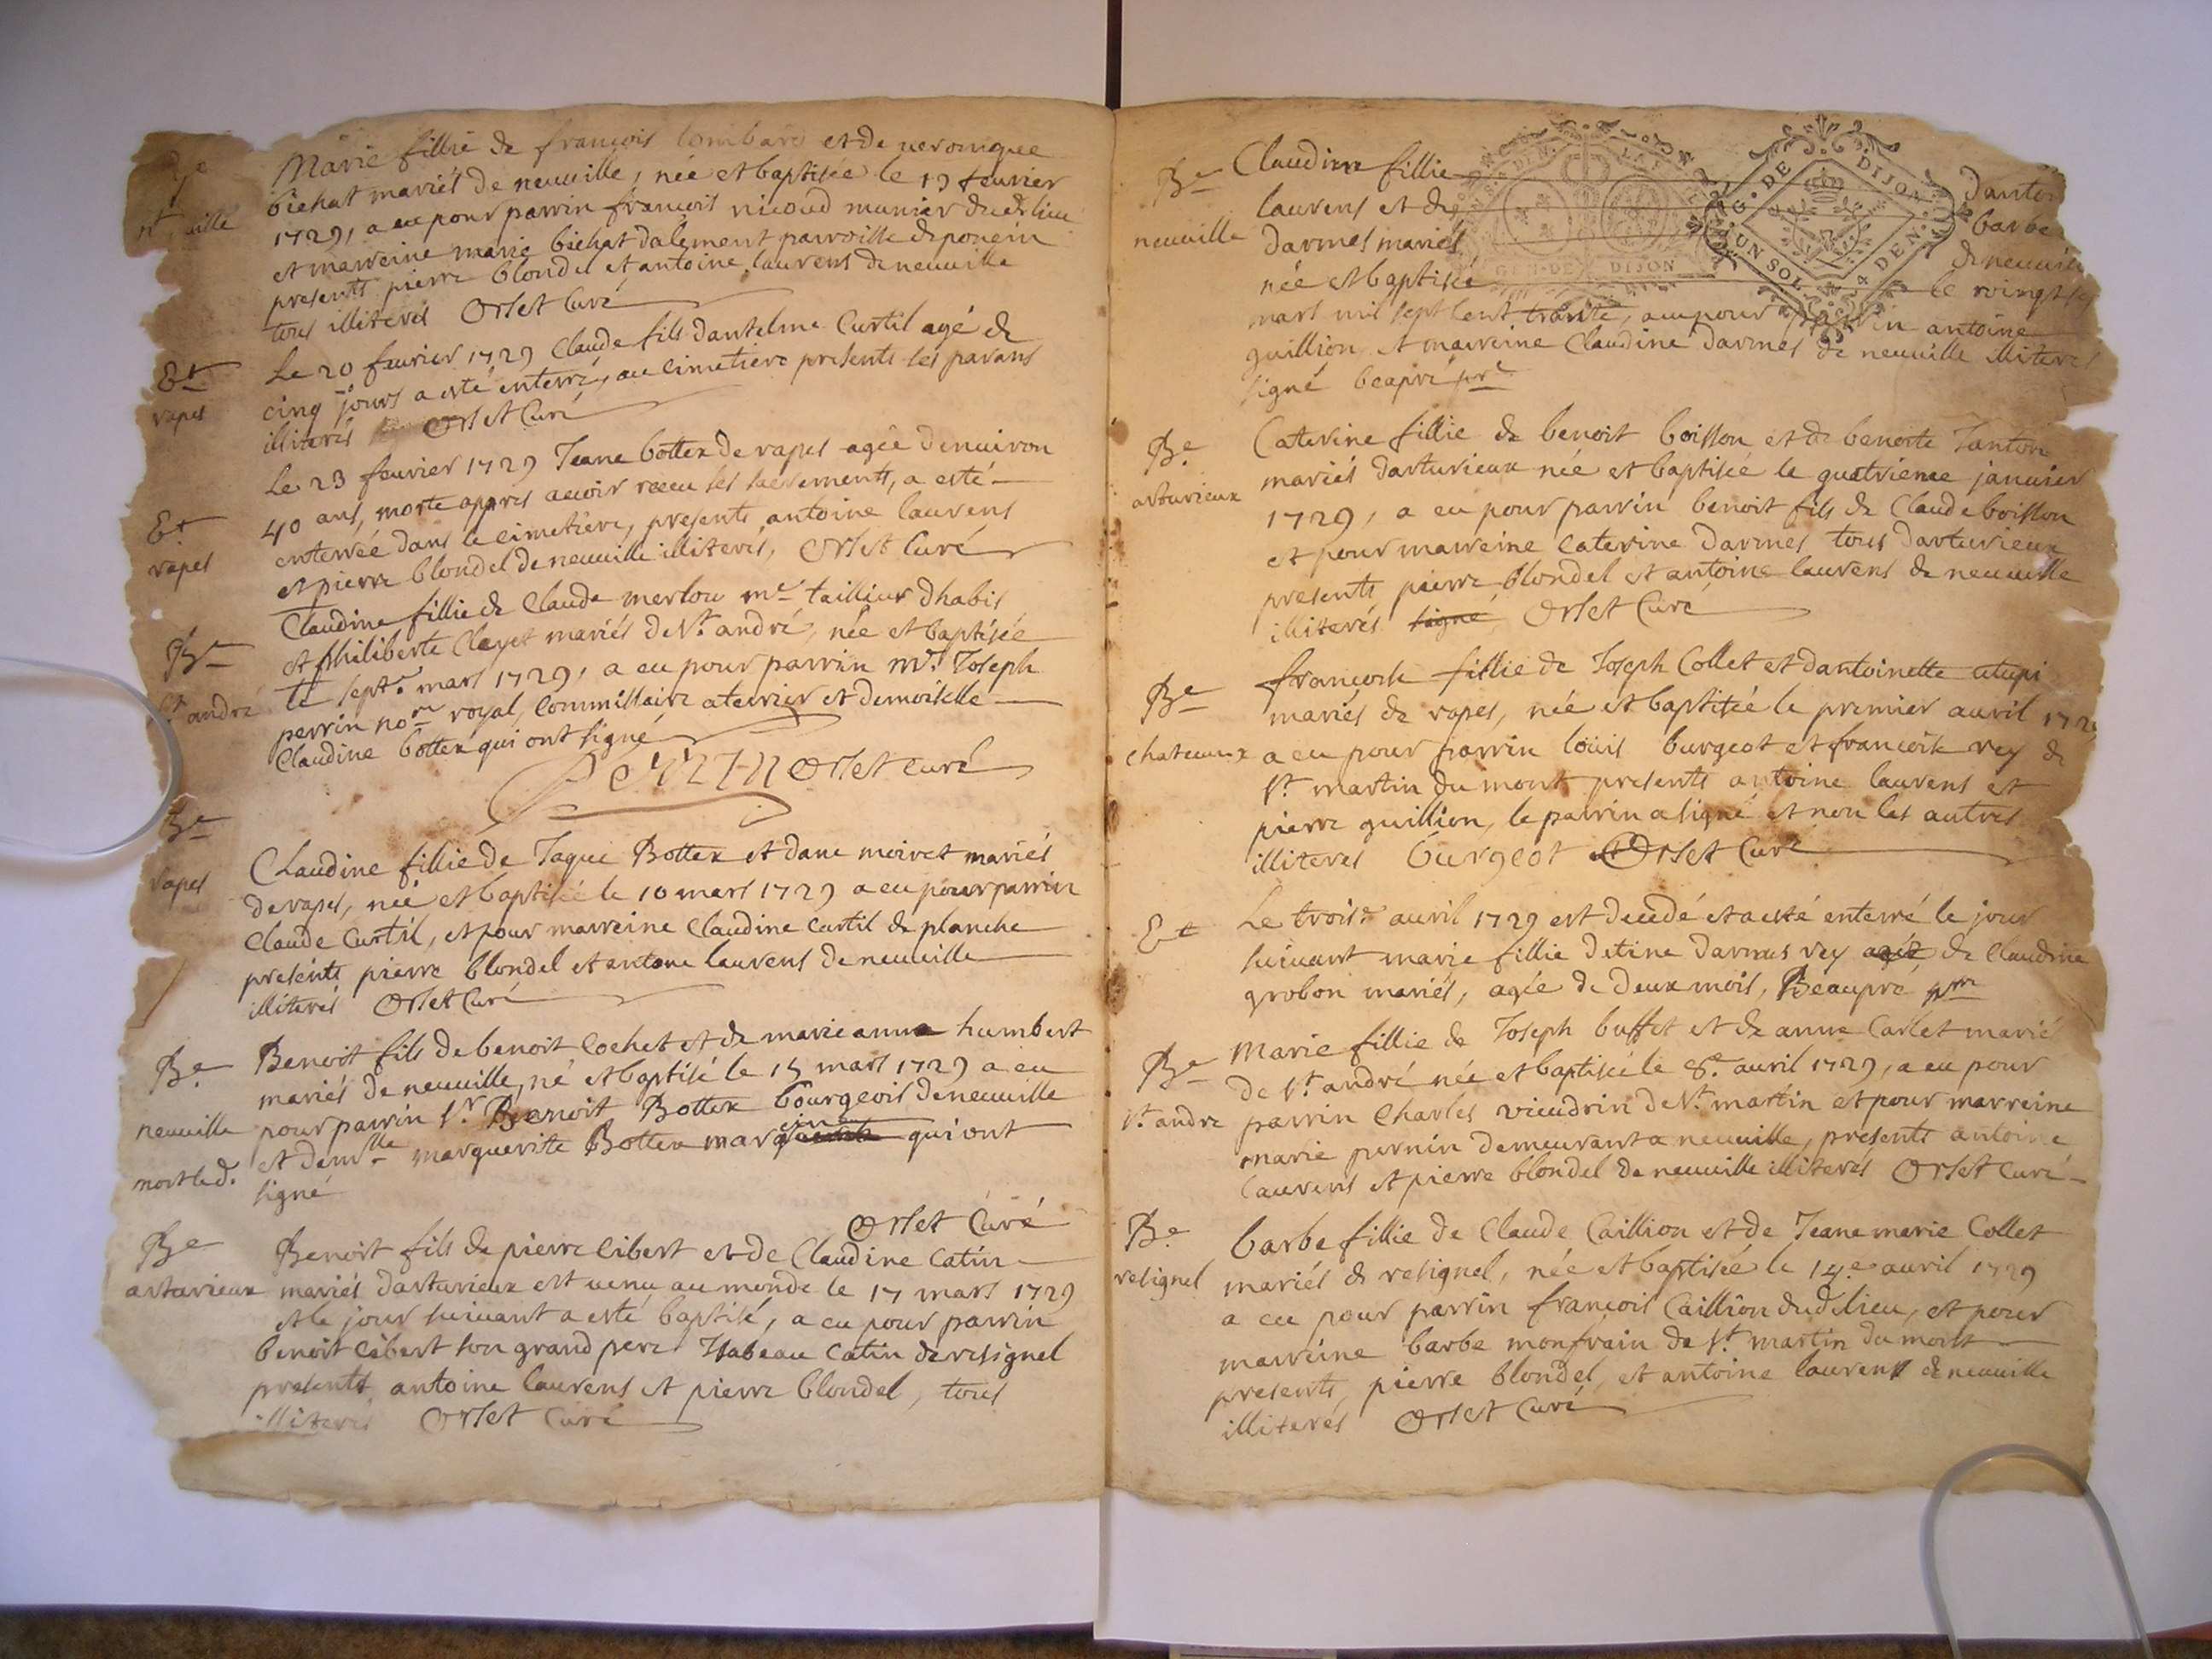 Be
neuville
Marie fillie de françois lombard et de veronique
bichat mariés de neuuille, née et baptisée le 19 feurier
1729, a eu pour parrin francois nicoud munier dudt lieu
et marreine marie bichat dalement parroisse de poncin
presents pierre blondel et antoine laurens de neuuille
tous illiterés Orset Curé
Et
vapes
Le 20 feurier 1729 Claude fils dantelme Curtil agé de
cinq jours a esté enterré, au cimetiere presents ses parans
illiterés Orset Curé
Et
rapes
Le 23 feurier 1729 Jeane bottex de rapes agée denuiron
40 ans, morte appres auoir receu ses sacrements, a esté
enterrée dans le cimetiere, presents antoine laurens
et pierre blondel de neuuille illiterés, Orset Curé
Be
st andré
Claudine fillie de Claude merlou me taillieur dhabis
et philiberte Clayet mariés de st andré, née et baptisée
le septe mars 1729, a eu pour parrin mr Joseph
perrin nore royal, Commissaire a terrier et demoiselle
Claudine bottex qui ont signé
Perrin Orset curé
Be
rapes
Claudine fillie de Jaque Bottex et dane moiret mariés
de rapes, née et baptisée le 10 mars 1729 a eu pour parrin
Claude Curtil, et pour marreine Claudine Curtil de planche
presents pierre blondel et antone laurens de neuuille
illiterés Orset Curé
Be
neuuille
mort led.
Benoit fils de benoit Cochet et de marie anne humbert
mariés de neuuille, né et baptisé le 15 mars 1729 a eu
pour parrin sr Benoit Bottex bourgeois de neuuille
et demlle marguerite Bottex qui ont
signé
Orset Curé
Be
arturieux
Benoit fils de pierre Cibert et de Claudine Catin
mariés darturieux est uenu au monde le 17 mars 1729
et le jour suiuant a esté baptisé, a eu pour parrin
benoit Cibert son grand pere Isabeau Catin de resignel
presents antoine laurens et pierre blondel, tous
illiterés Orset Curé
Be
neuuille
Claudine fillie danton
laurens et de barbe
darmes mariés de neuuille
née et baptisée le vingt
mars mil sept cent trante, a eu pour parrin antoine
guillion et marreine Claudine darmes de neuuille illiteres
signé beapré
GEN. DE DIJON
G. DE DIJON
UN SOL 4 DEN.
Be
arturieux
Caterine fillie de benoit boisson et de benoite Janton
mariés darturieux née et baptisée le quatrieme januier
1729, a eu pour parrin benoit fils de Claude boisson
et pour marreine Caterine darmes tous darturieux
presents pierre blondel et antoine laurens de neuuille
illiterés signé Orset Curé
Be
chateuieux
francoise fillie de Joseph Collet et dantoinette
mariés de rapes, née et baptisée le premier auril 1729
a eu pour parrin loüis burgeot et francoise rey de
st martin du mont presents antoine laurens et
pierre guillion, le parrin a signé et non les autres
illiteres burgeot Orset Curé
Et
Le troise auril 1729 est decedé et a esté enterré le jour
suiuant marie fillie detine darmes rey agée de Claudine
grobon mariés, agée de deux mois, Beaupré
Be
st andre
Marie fillie de Joseph buffet et de anne Carlet mariés
de st andré née et baptisée le 8e auril 1729, a eu pour
parrin Charles vieudrin de st martin et pour marreine
marie pernin demeurant a neuuille, presents antoine
laurens et pierre blondel de neuuille illiterés Orset Curé
Be
resignel
barbe fillie de Claude Caillion et de Jeane marie Collet
mariés de resignel, née et baptisée le 14e auril 1729
a eu pour parrin francois Caillion dudt lieu, et pour
marreine barbe monfrain de st martin du mont
presents, pierre blondel, et antoine laurens de neuuille
illiterés Orset Curé